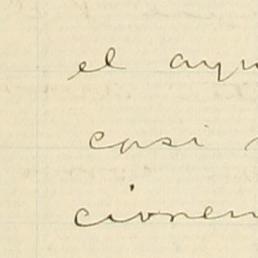 el ayu
casi
cionen